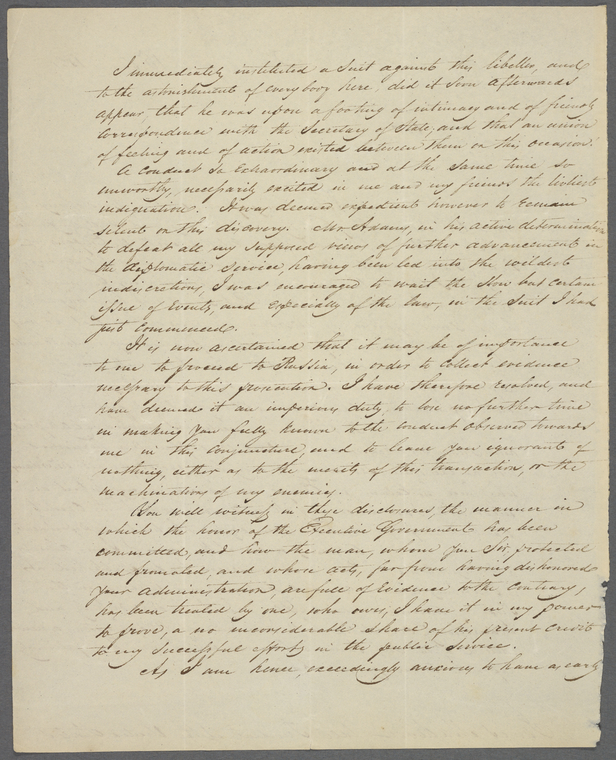 I immediately instituted a Suit against this libeller, and
to the astonishment of every body here, did it soon afterwards
appear that he was upon a footing of intimacy and of friendly
correspondence with the Secretary of State, and that an union
of feeling and of action existed between them on this occasion.
A conduct so extraordinary and at the same time so
unworthy, necessarily excited in me and my friends the liveliest
indignation. It was deemed expedient however to remain
silent on this discovery. Mr Adams, in his active determination
to defeat all my supposed views of further advancement in
the diplomatic service having been led into the wildest
indiscretions, I was encouraged to wait the slow but certain
issue of Events, and especially of the law, in the Suit I had
just commenced.
It is now ascertained that it may be of importance
to me to proceed to Russia, in order to collect evidence
necessary to this prosecution. I have therefore resolved, and
have deemed it an imperious duty, to lose no further time
in making you fully known to the conduct observed towards
me in this conjuncture, and to leave you ignorant of
nothing, either as to the merits of this transaction, or the
machinations of my enemies.
You will witness in these disclosures the manner in
which the honor of the Executive Government has been
committed, and how the man, whom you Sir, protected
and promoted, and whose acts, far from having dishonored
your administration, are full of evidence to the contrary,
has been treated by one, who owes, I have it in my power
to prove, a no inconsiderable share of his present credit
to my successful efforts in the public service.
As I am hence, exceedingly anxious to have as early